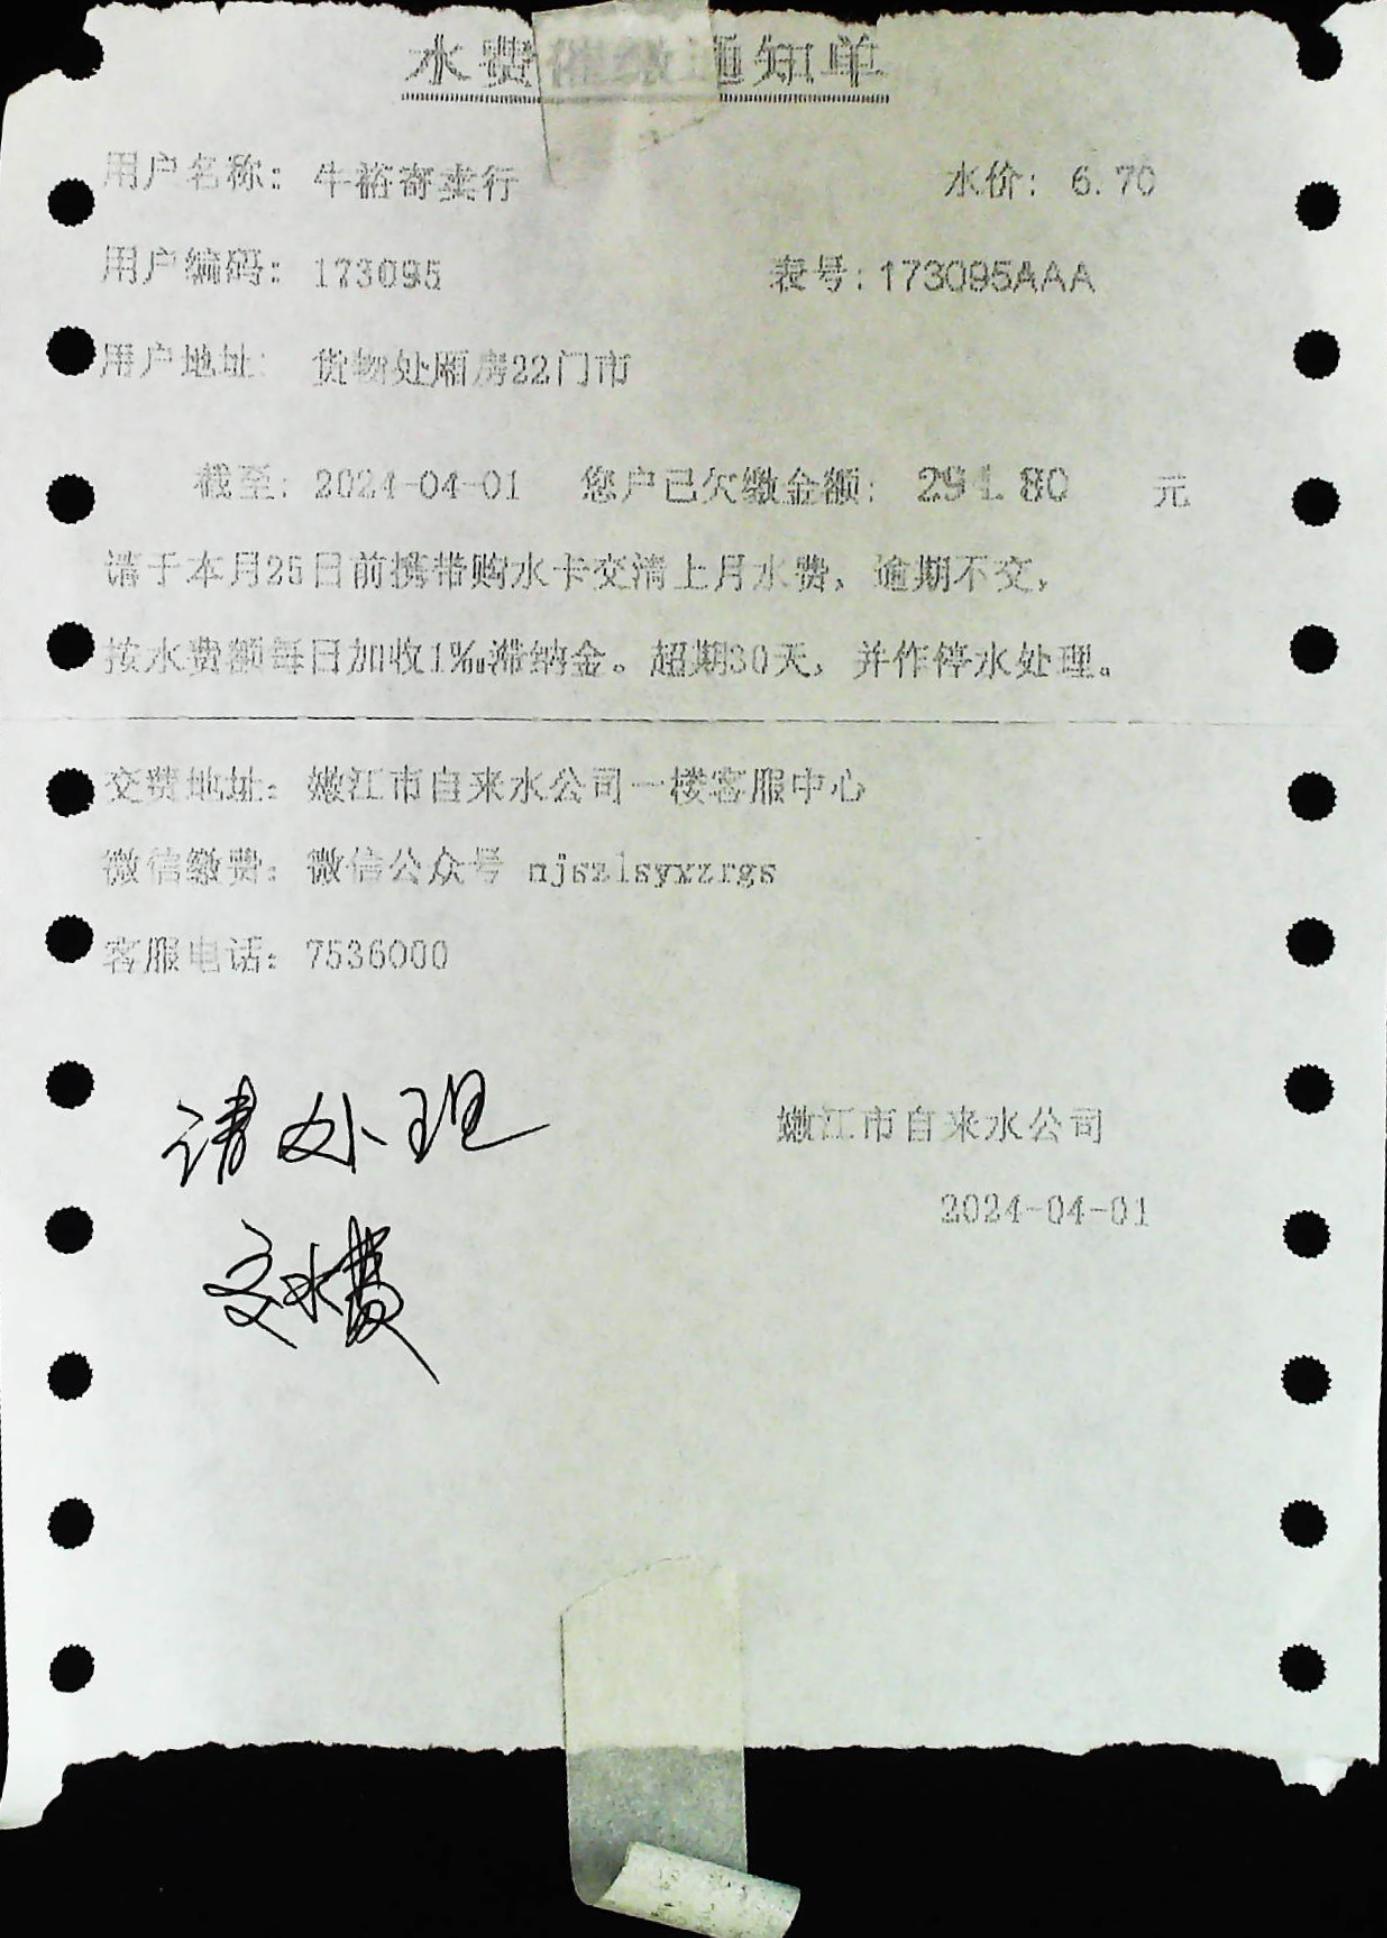 水费 通知单
用户名称: 牛裕寄卖行 水价: 6.70
用户编码: 173095 表号: 173095AAA
用户地址: 货物处厢房22门市
截至: 2024-04-01 您户已欠缴金额: 294.80 元
请于本月25日前携带购水卡交清上月水费, 逾期不交,
按水费额每日加收1‰滞纳金。超期30天, 并作停水处理。
交费地址: 嫩江市自来水公司一楼客服中心
微信缴费: 微信公众号 njszlsyxzrgs
客服电话: 7536000
请处理
交水费
嫩江市自来水公司
2024-04-01